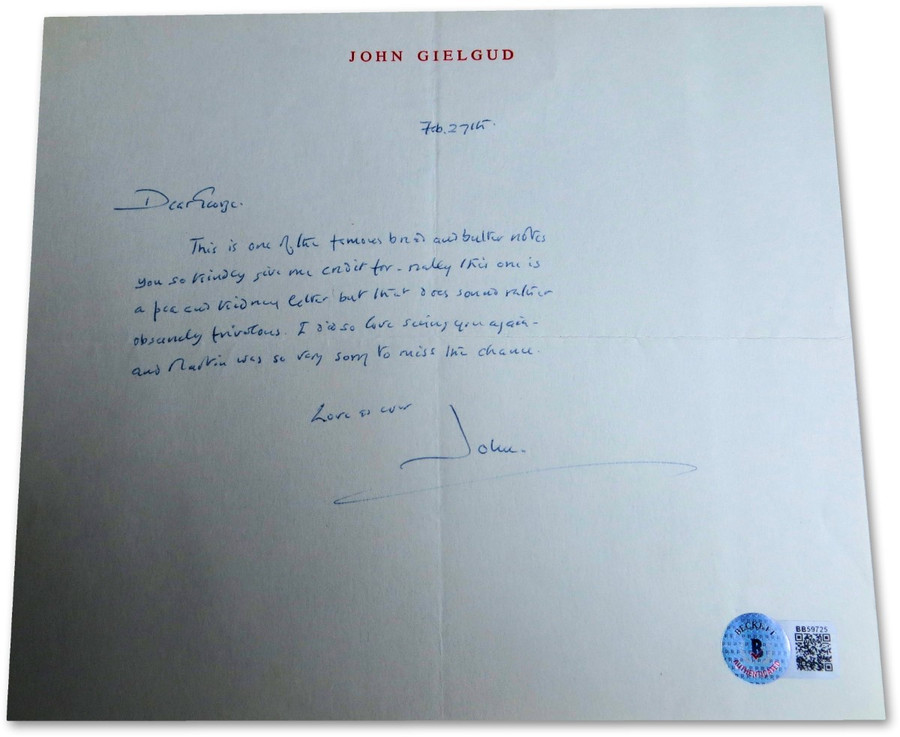 JOHN GIELGUD
Feb. 27th.
Dear George.
This is one of the famous bread and butter notes
you so kindly give me credit for - really this one is
a pea and kidney letter but that does sound rather
obscenely frivolous. I did so love seeing you again -
and Martin was so very sorry to miss the chance.
Love as ever
John.
BECKETT
B
AUTHENTICATED
BB59725